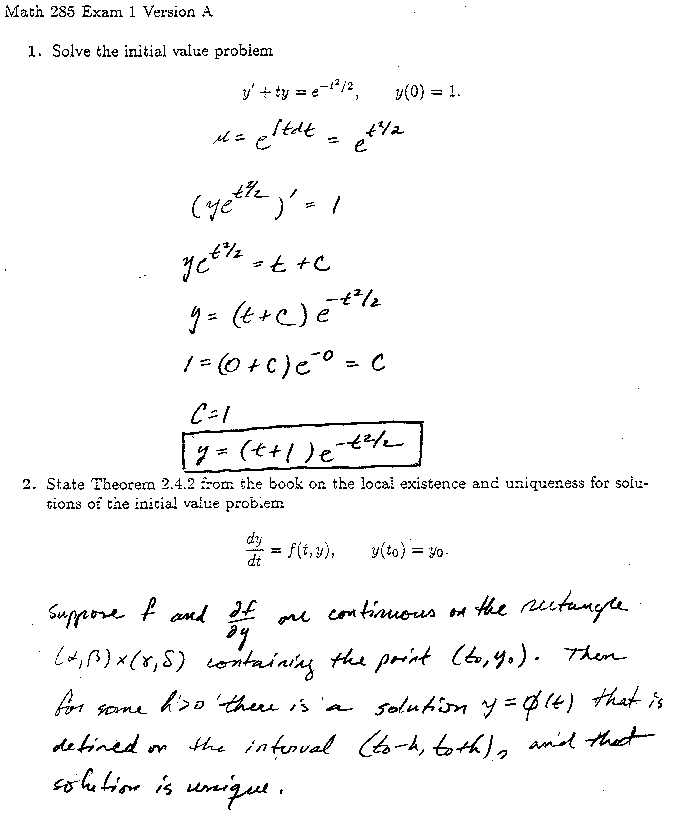 Math 285 Exam 1 Version A
1. Solve the initial value problem
y′ + ty = e^{-t²/2},    y(0) = 1.
μ = e^{∫tdt} = e^{t²/2}
(ye^{t²/2})′ = 1
ye^{t²/2} = t + C
y = (t+C) e^{-t²/2}
1 = (0 + C)e^{-0} = C
C = 1
y = (t+1)e^{-t²/2}
2. State Theorem 2.4.2 from the book on the local existence and uniqueness for solu-
tions of the initial value problem
dy/dt = f(t, y),    y(t₀) = y₀.
Suppose f and ∂f/∂y are continuous on the rectangle
(α,β)×(γ,δ) containing the point (t₀,y₀). Then
for some h>0 there is a solution y = φ(t) that is
defined on the interval (t₀-h, t₀+h), and that
solution is unique.